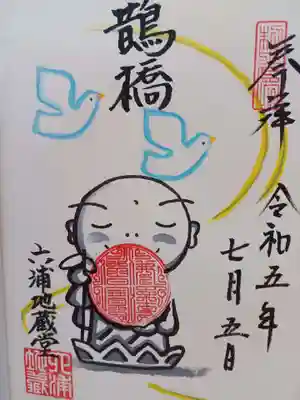 奉拝
令和五年
七月五日
鵲橋
六浦地蔵堂
六浦
地蔵